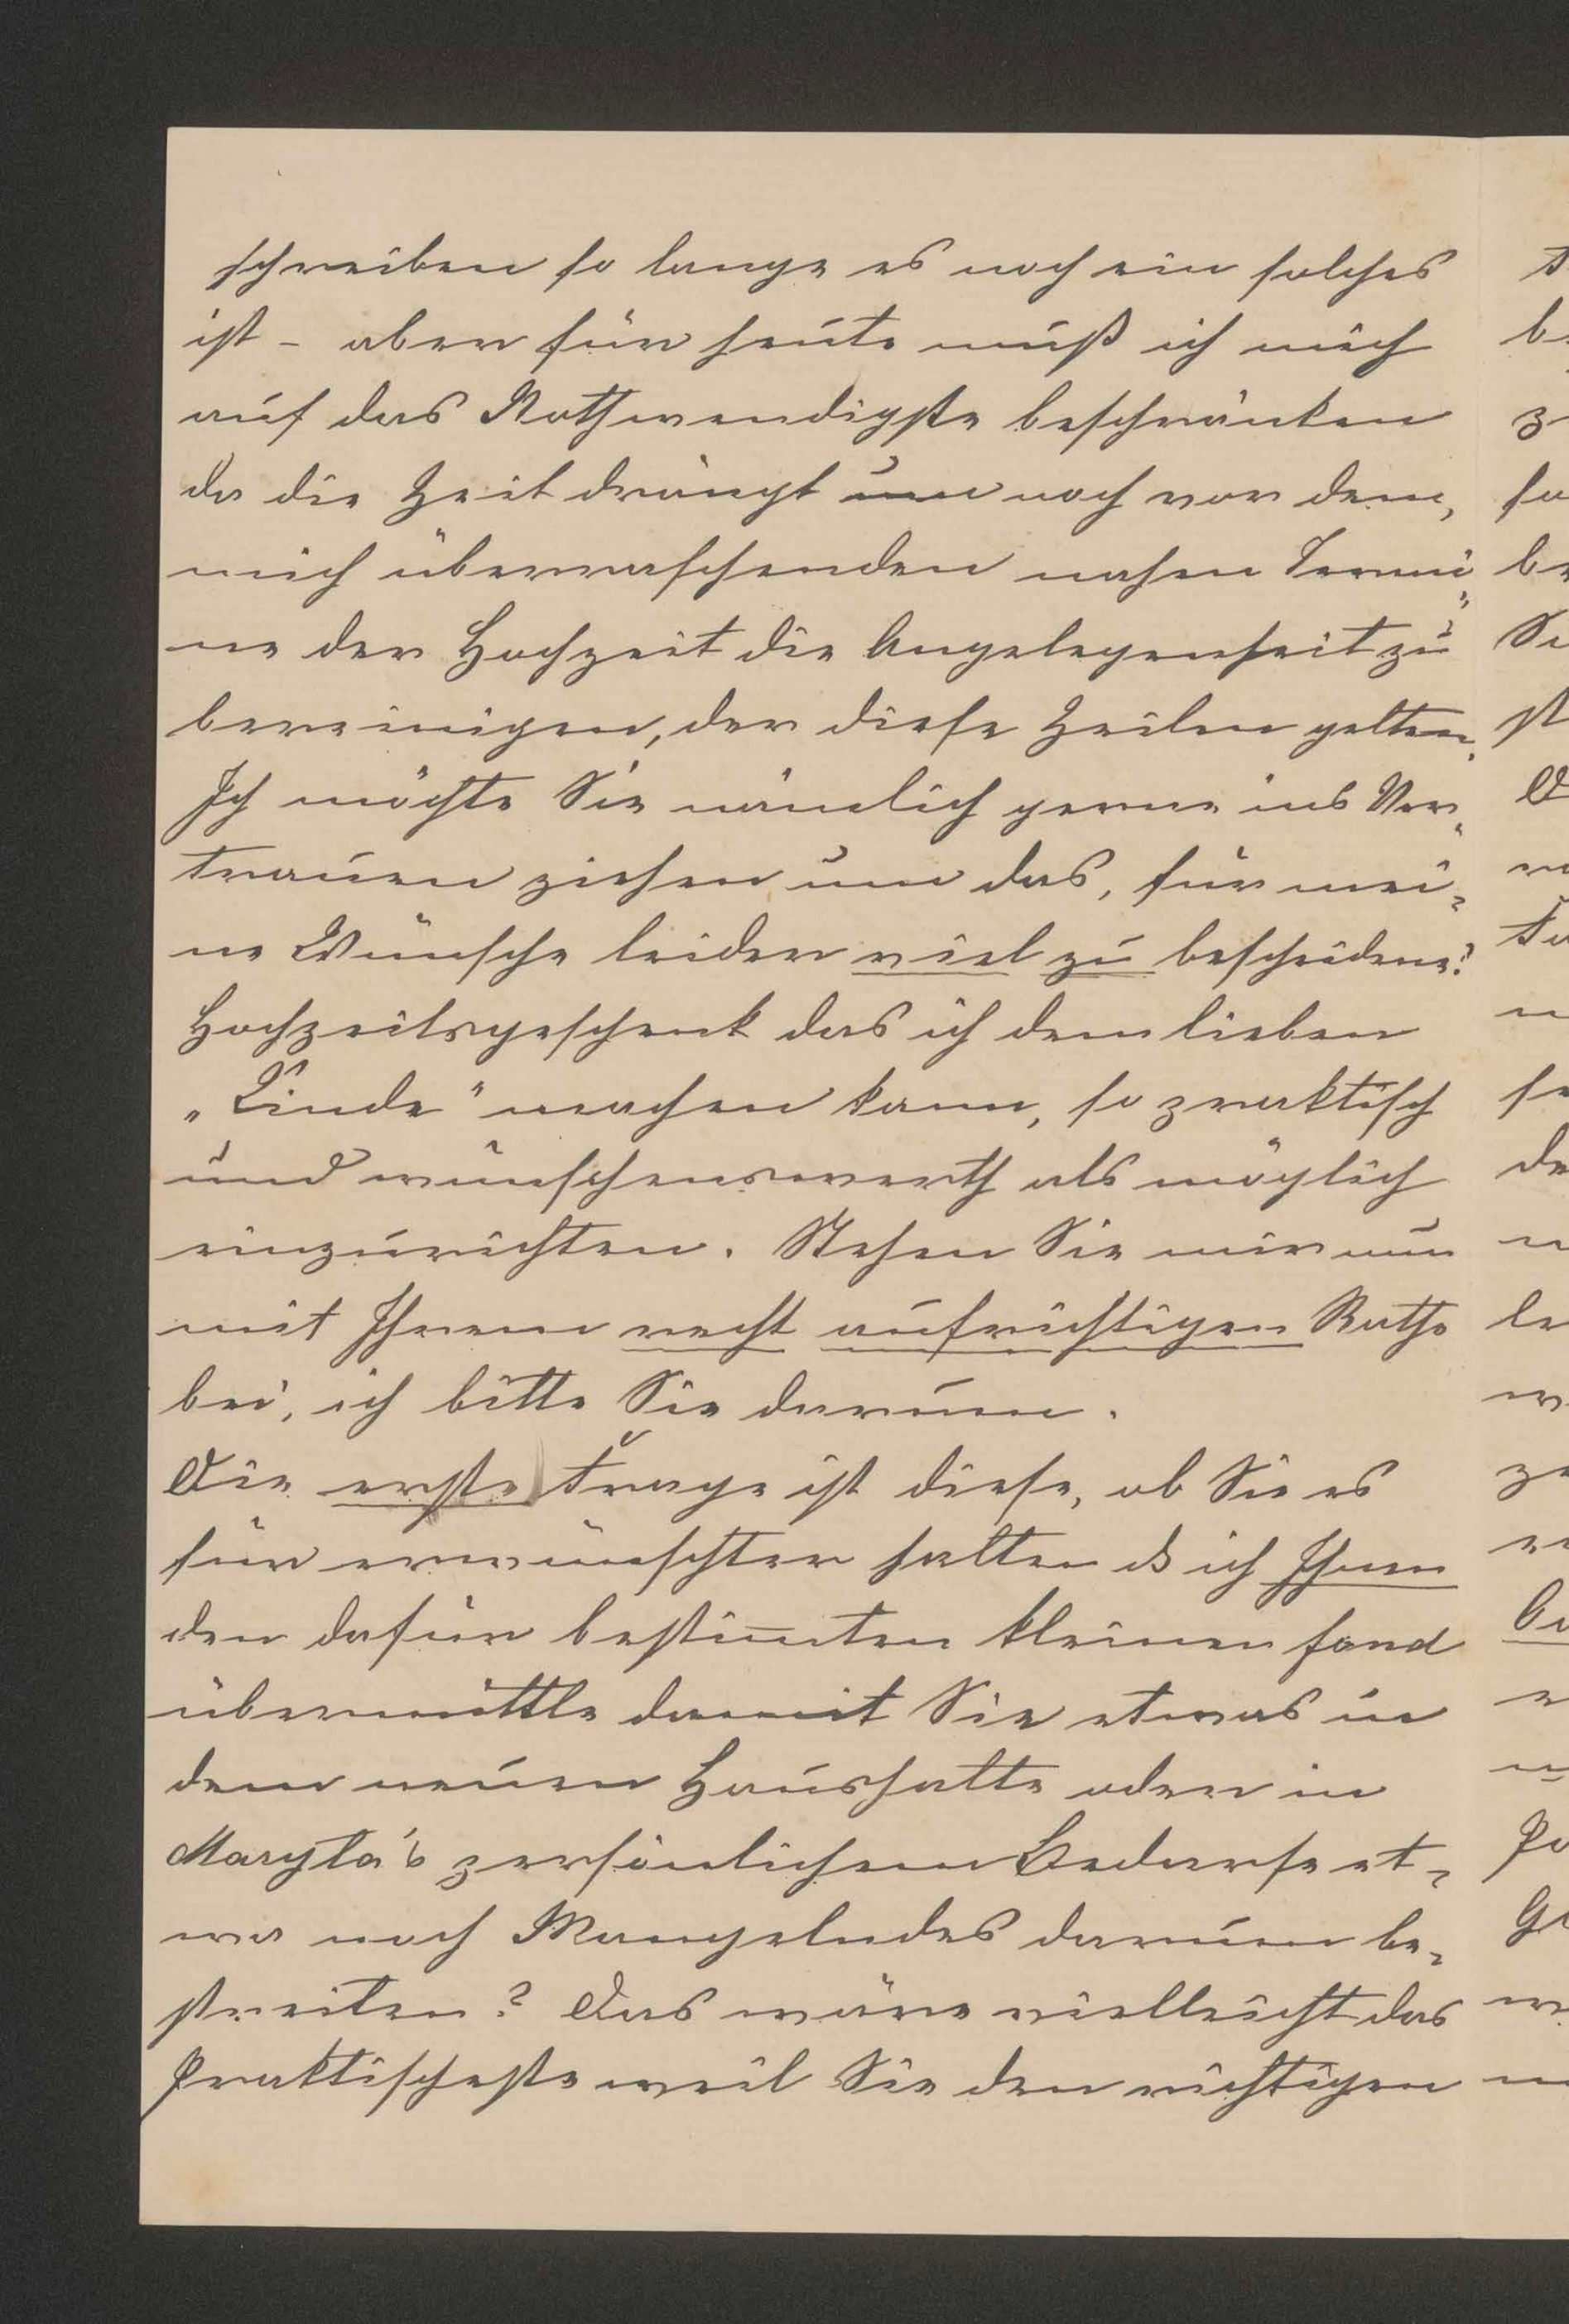 schreiben so lange es noch ein solches
ist – aber für heute muß ich mich
auf das Nothwendigste beschränken
da die Zeit drängt um noch vor dem,
mich überraschenden nahen Termi„
ne der Hochzeit die Angelegenheit zu
bereinigen, der diese Zeilen gelten.
Ich möchte Sie nämlich gerne ins Ver„
trauen ziehen um das, für mei„
ne Wünsche leider viel zu bescheidene!
Hochzeitsgeschenk das ich dem lieben
„Kinde" machen kann, so praktisch
und wünschenswerth als möglich
einzurichten. Stehen Sie mir nun
mit Ihrem recht aufrichtigen Rathe
bei, ich bitte Sie darum.
Die erste Frage ist diese, ob Sie es
für erwünschter halten ds ich Ihnen
den dafür bestim̅ten kleinen fond
übermittle damit Sie etwas in
dem neuen Haushalte oder in
Maryla's persönlichem Bedarfe et„
wa noch Mangelndes darum be„
streiten? Das wäre vielleicht das
Praktischeste weil Sie den richtigen